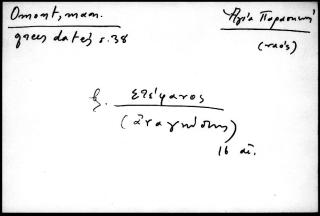 Omont, man.
grecs datés s. 38
Ἁγία Παρασκευή
(ναός)
ξ. Στέφανος
(ἀναγνώστης)
16 αἰ.